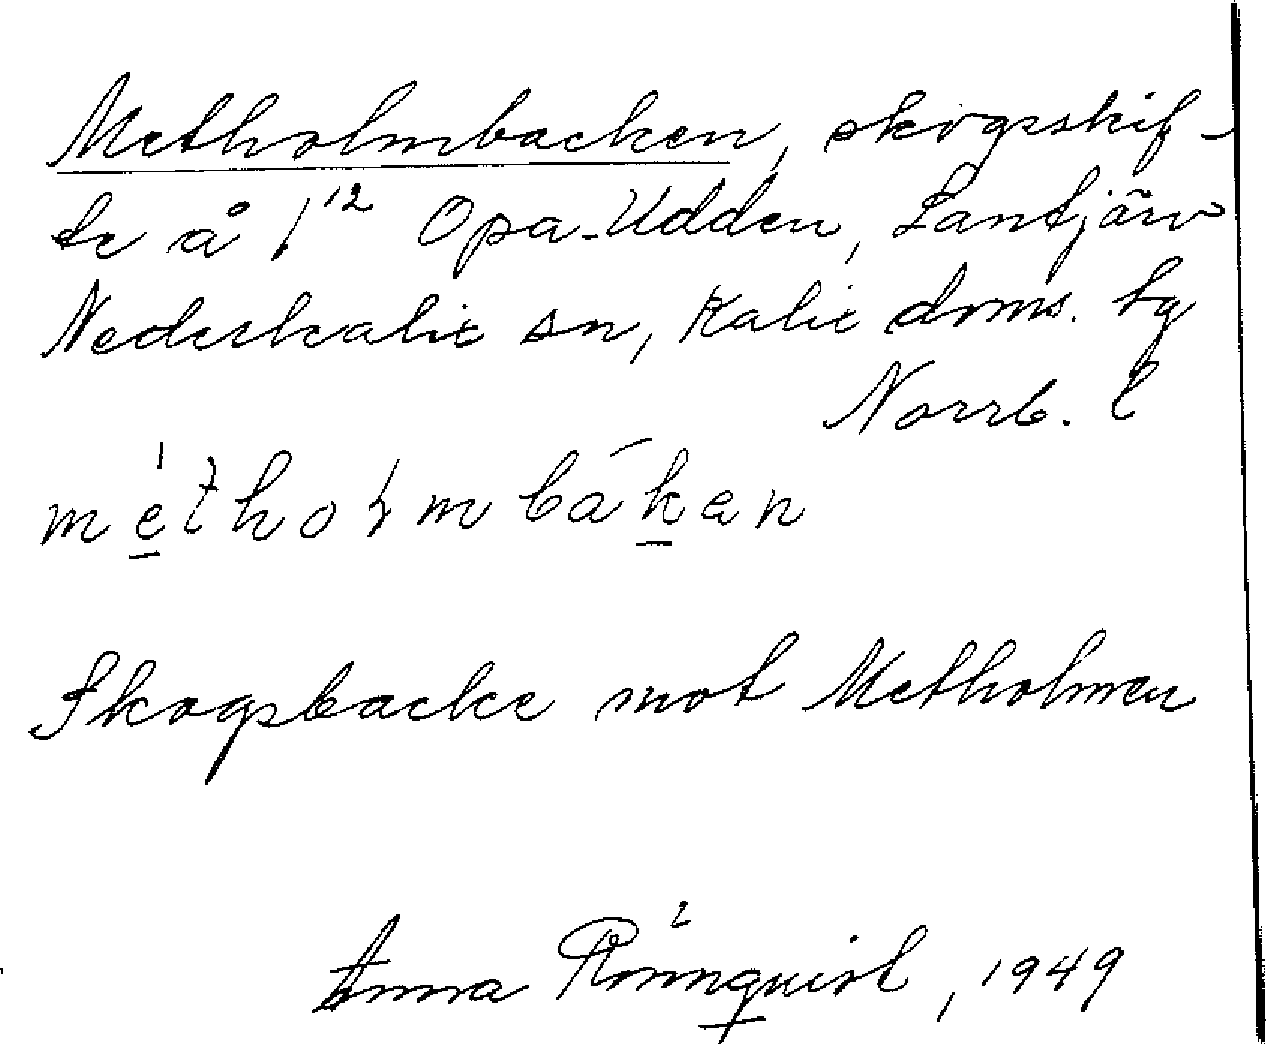 Metholmbacken, skogsskif-
te å 1¹² Opa-Udden, Lantjärv
Nederkalix sn, Kalix doms. tg
Norrb. l
métholmbákan
Skogsbacke mot Metholmen
Anna Rönnquist, 1949